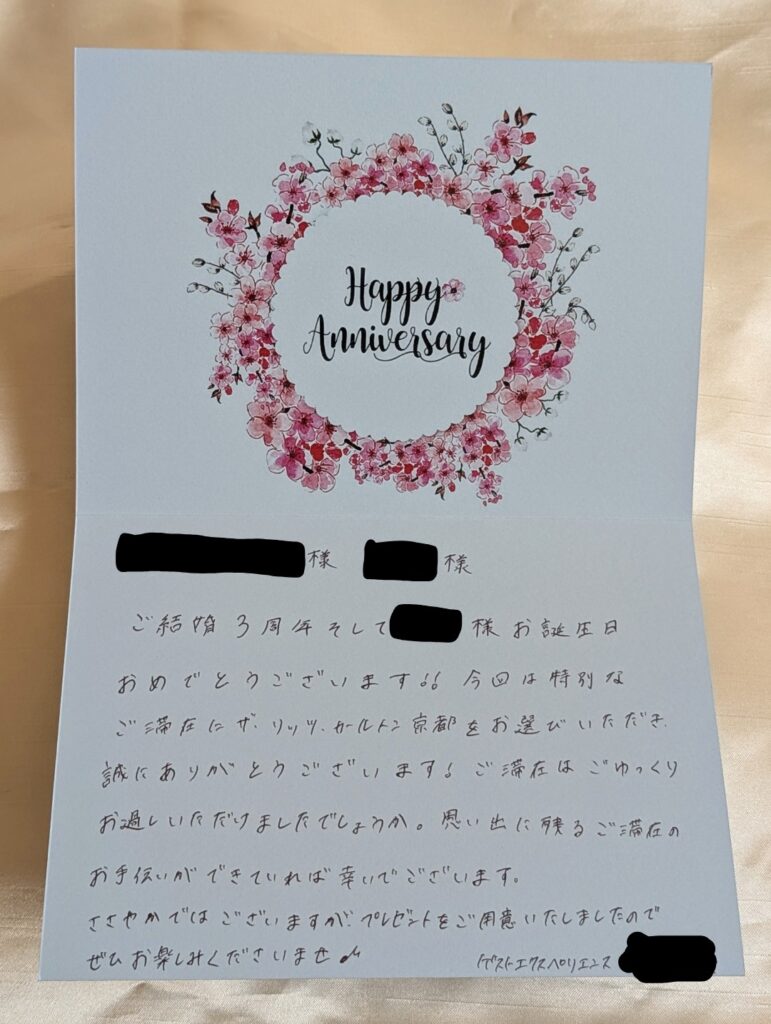 Happy
Anniversary
様 様
ご結婚3周年そして 様お誕生日
おめでとうございます!! 今回は特別な
ご滞在にザ・リッツ・カールトン京都をお選びいただき、
誠にありがとうございます! ご滞在はごゆっくり
お過しいただけましたでしょうか。思い出に残るご滞在の
お手伝いができていれば幸いでございます。
ささやかではございますが、プレゼントをご用意いたしましたので
ぜひお楽しみくださいませ♪
ゲストエクスペリエンス